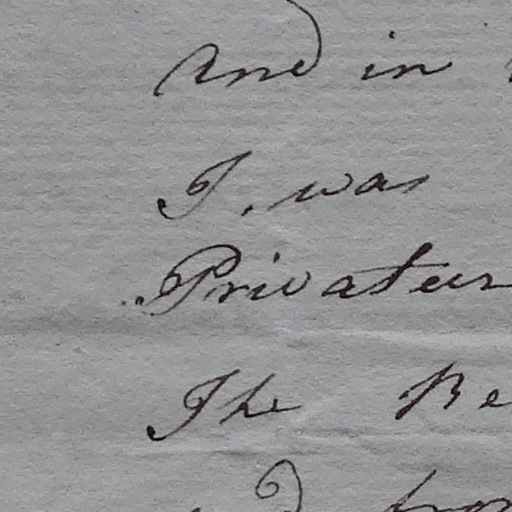 And in
I was
Privateer
The Be